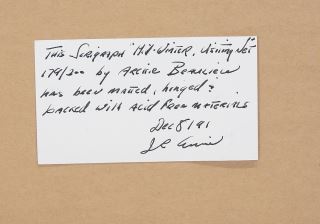 THIS SERIGRAPH "Mid-WINTER, 
179/200 by ARCHIE BEAULIEU
HAS been MATTED, hinged &
backed with Acid Free MATERIALS
Dec 8/91